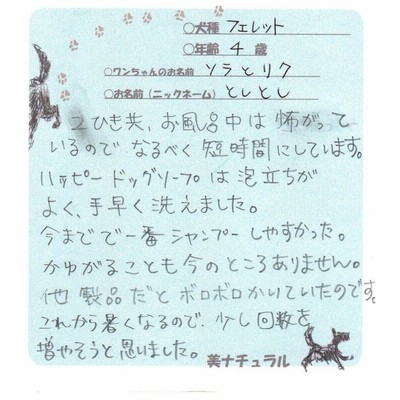 ○犬種 フェレット
○年齢 4 歳
○ワンちゃんのお名前 ソラとリク
○お名前(ニックネーム) としとし
2ひき共、お風呂中は怖がって
いるので なるべく短時間にしています。
ハッピードッグソープは泡立ちが
よく、手早く洗えました。
今までで一番シャンプーしやすかった。
かゆがることも今のところありません。
他製品だとボロボロかいていたのです。
これから暑くなるので、少し回数を
増やそうと思いました。
美ナチュラル